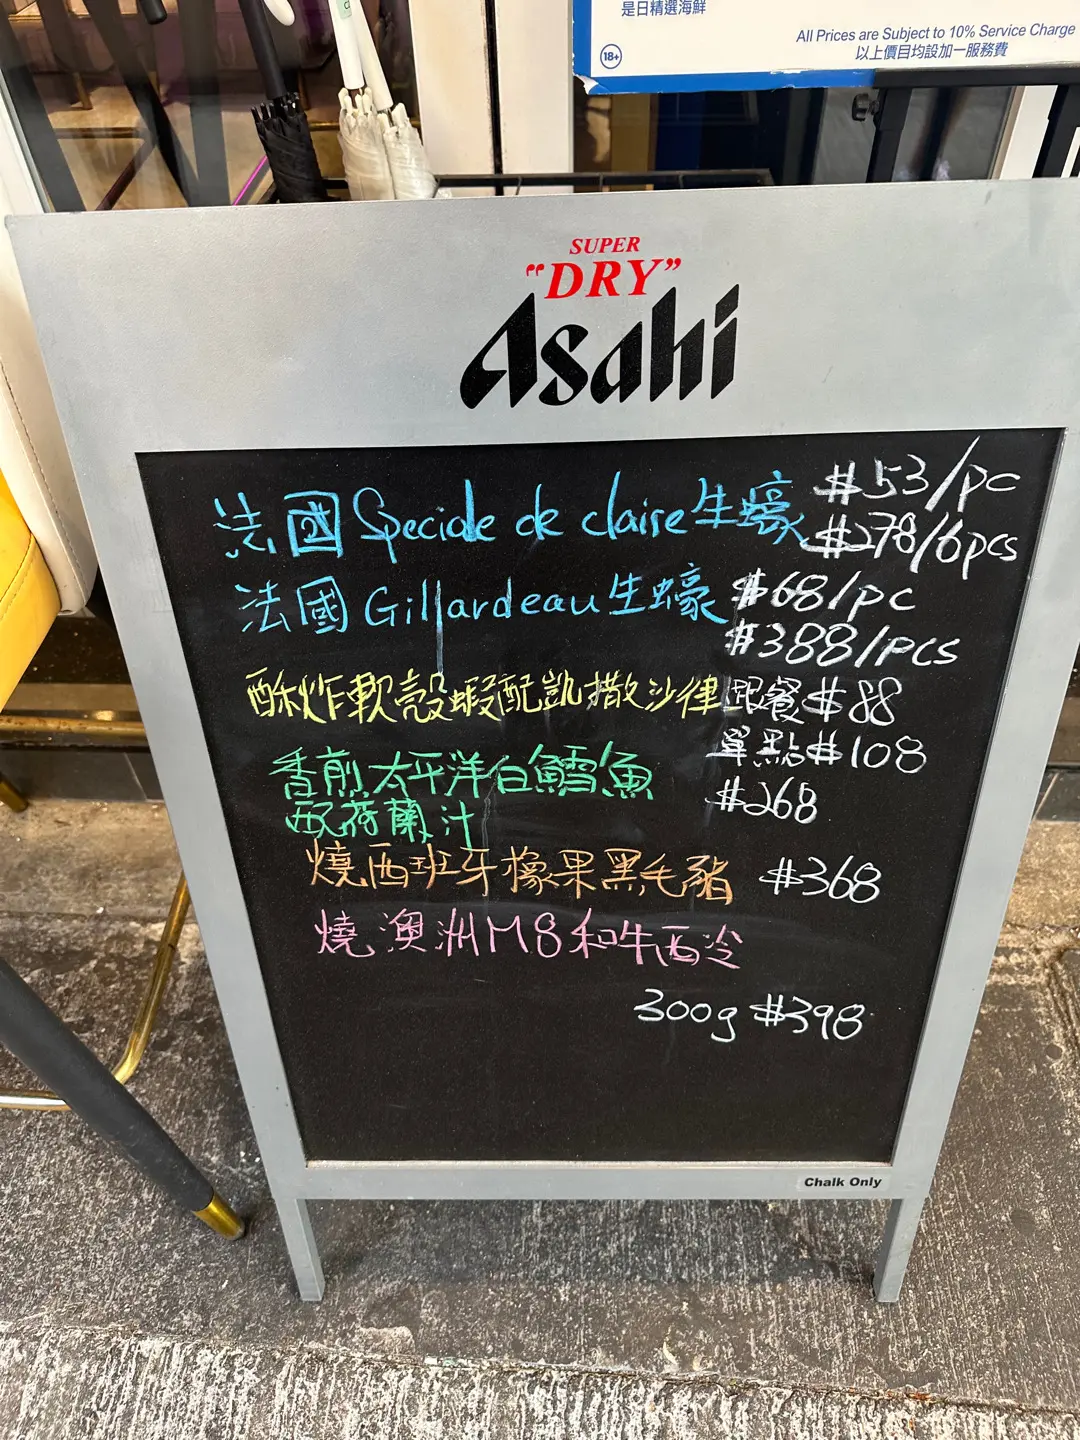 是日精選海鮮
All Prices are Subject to 10% Service Charge
以上價目均設加一服務費
18+
SUPER
"DRY"
Asahi
法國 Speciale de claire 生蠔 $53/pc
$278/6pcs
法國 Gillardeau 生蠔 $68/pc
$388/pcs
酥炸軟殼蝦配凱撒沙律 跟餐 $88
單點 $108
香煎太平洋白鱈魚 $268
配荷蘭汁
燒西班牙橡果黑毛豬 $368
燒澳洲M8和牛西冷
300g $398
Chalk Only